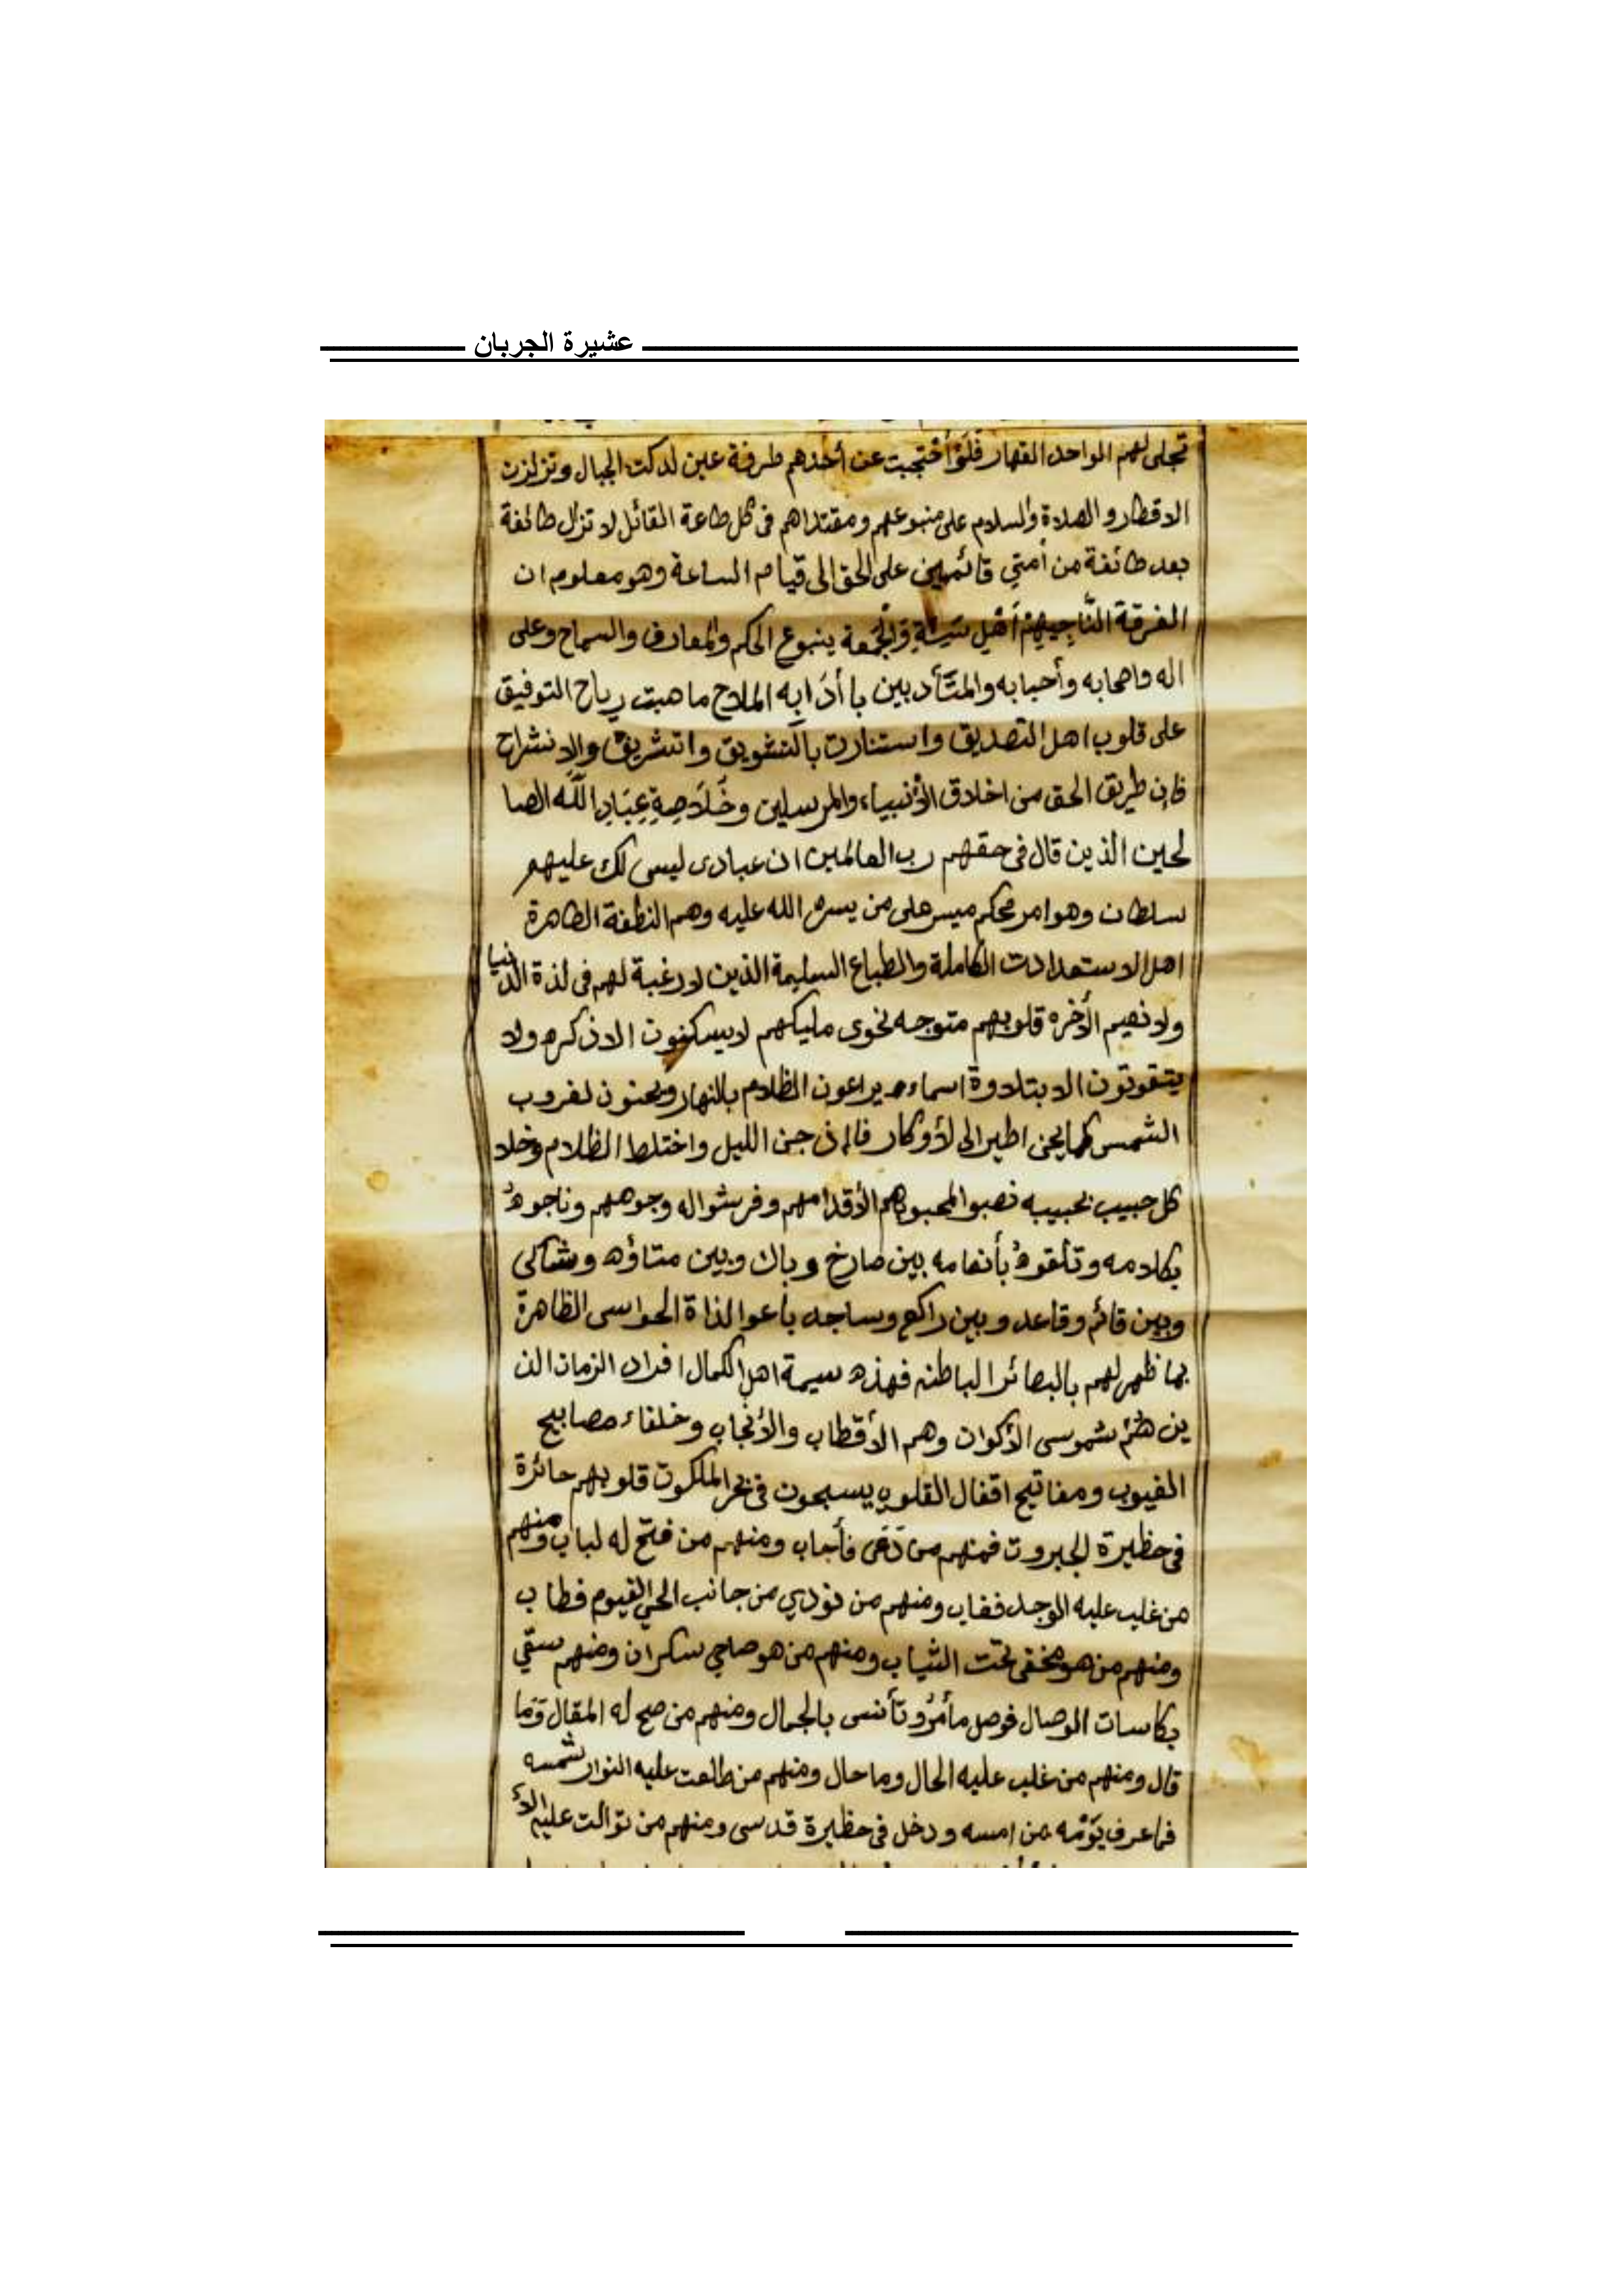 عشيرة الجربان
تجلى لهم الواحد القهار فلَوْ أحْتجبت عن أحدهم طرفة عين لدكت الجبال وتزلزت
الاقطار و الصلاة والسلام على منبوعهم ومقتداهم فى كل طاعة القائل لا تزال طائفة
بعد طائفة من أمتي قائمين على الحق الى قيام الساعة وهو معلوم ان
الفرقة النَّاجيه هم أهْل سنة والجمعة ينبوع الحكم والمعارف والسماح وعلى
اله واصحابه وأحبابه والمتَأدبين با أدَابه الملاح ما هبت رياح التوفيق
على قلوب اهل التصديق واستنارت بالتشويق واتشريق والانشراح
فإن طريق الحق من اخلاق الأنبياء والمرسلين وخُلَاصِةِ عِبَادِ اللَّه الصا
لحين الذين قال فى حقهم رب العالمين ان عبادى ليس لك عليهم
سلطان وهو امر محكم ميسر على من يسره الله عليه وهم النطفة الطاهرة
اهل الاستعدادت الكاملة والطباع السليمة الذين لا رغبة لهم فى لذة الدنيا
ولا نعيم الأخره قلوبهم متوجه نحوى مليكهم لا يسكنون الا ذكره ولا
يتقوتون الا بتلاوة اسماءه يراعون الظلام بالنهار ويحنون لغروب
الشمس كما يحن اطير الى لأوكار فااذ جن الليل واختلط الظلام وخلا
كل حبيب بحبيبه نصبوا لمحبوبهم الأقدامهم وفرشوا له وجوههم وناجوهُ
بكلامه وتلقوهُ بأنعامه بين صارخ و باك وبين متاؤه وشاكى
وبين قائم وقاعد وبين راكع وساجد باعوا لذاة الحواسى الظاهرة
بما ظهر لهم بالبصائر الباطنه فهذه سيمة اهل الكمال افراد الزمان الذ
ين هُمْ شموسى الأكوان وهم الأقطاب والأنجاب وخلفاء مصابيح
الغيوب ومفاتيح اقفال القلوب يسبحون فى بحر الملكوت قلوبهم حائرة
فى حظيرة الجبروت فمنهم من دَعَى فأجاب ومنهم من فتح له لباب ومنهم
من غلب عليه الوجد فغاب ومنهم من نودي من جانب الحي القيوم فطاب
ومنهم من هو مخفى تحت الثياب ومنهم من هو صاحي سكران ومنهم سقي
بكاسات الوصال فوصل مأمرُو تأنسى بالجمال ومنهم من صح له المقال وَمَا
قال ومنهم من غلب عليه الحال وما حال ومنهم من طلعت عليه النوار شمسه
فما عرف يَوْمَه من امسه ودخل فى حظيرة قدسى ومنهم من توالت عليه الأ